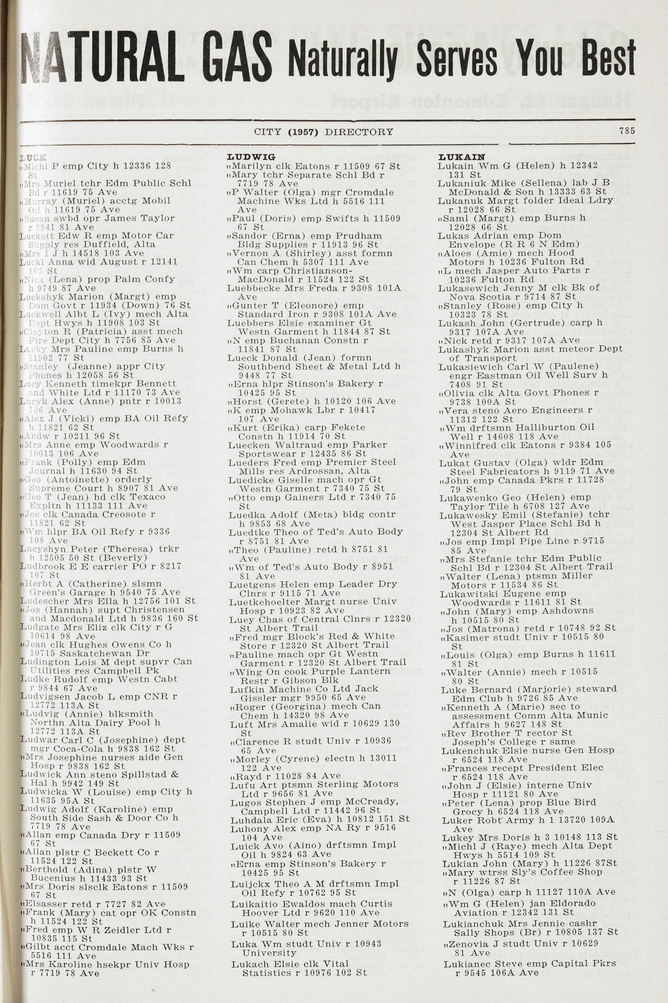 NATURAL GAS Naturally Serves You Best
CITY (1957) DIRECTORY 785
LUCK
„Michl P emp City h 12336 128
St
„Mrs Muriel tchr Edm Public Schl
Bd r 11619 75 Ave
„Murray (Muriel) acctg Mobil
Oil h 11619 75 Ave
„Susan swbd opr James Taylor
r 9941 81 Ave
Luckett Edw R emp Motor Car
Supply res Duffield, Alta
„Mrs I J h 14518 103 Ave
Lucki Anna wid August r 12141
101 St
„Nick (Lena) prop Palm Confy
h 9749 87 Ave
Luckshyk Marion (Margt) emp
Dom Govt r 11934 (Down) 76 St
Luckwell Albt L (Ivy) mech Alta
Dept Hwys h 11908 103 St
„Clayton R (Patricia) asst mech
Fire Dept City h 7756 85 Ave
Lucky Mrs Pauline emp Burns h
11902 77 St
„Stanley (Jeanne) appr City
Phones h 12058 56 St
Lucy Kenneth timekpr Bennett
and White Ltd r 11170 73 Ave
Lucyk Alex (Anne) pntr r 10013
106 Ave
„Alex J (Vicki) emp BA Oil Refy
h 11821 62 St
„Andw r 10211 96 St
„Mrs Anne emp Woodwards r
10013 106 Ave
„Frank (Polly) emp Edm
Journal h 11630 94 St
„Geo (Antoinette) orderly
Supreme Court h 8907 81 Ave
„Geo T (Jean) hd clk Texaco
Expltn h 11133 111 Ave
„Jos clk Canada Creosote r
11821 62 St
„Wm hlpr BA Oil Refy r 9336
108 Ave
Lucyshyn Peter (Theresa) trkr
h 12505 50 St (Beverly)
Ludbrook E E carrier PO r 8217
107 St
„Herbt A (Catherine) slsmn
Green's Garage h 9540 75 Ave
Ludescher Mrs Ella h 12756 101 St
„Jos (Hannah) supt Christensen
and Macdonald Ltd h 9836 160 St
Ludgate Mrs Eliz clk City r G
10614 98 Ave
„Jean clk Hughes Owens Co h
10715 Saskatchewan Dr
Ludington Lois M dept supvr Can
Utilities res Campbell Pk
Ludke Rudolf emp Westn Cabt
r 9844 67 Ave
Ludvigsen Jacob L emp CNR r
12772 113A St
„Ludvig (Annie) blksmith
Northn Alta Dairy Pool h
12772 113A St
Ludwar Carl C (Josephine) dept
mgr Coca-Cola h 9838 162 St
„Mrs Josephine nurses aide Gen
Hosp r 9838 162 St
Ludwick Ann steno Spillstad &
Hal h 9942 149 St
Ludwicka W (Louise) emp City h
11635 95A St
Ludwig Adolf (Karoline) emp
South Side Sash & Door Co h
7719 78 Ave
„Allan emp Canada Dry r 11509
67 St
„Allan plstr C Beckett Co r
11524 122 St
„Berthold (Adina) plstr W
Bucenius h 11433 93 St
„Mrs Doris slsclk Eatons r 11509
67 St
„Elsasser retd r 7727 82 Ave
„Frank (Mary) cat opr OK Constn
h 11524 122 St
„Fred emp W R Zeidler Ltd r
10835 115 St
„Gilbt acct Cromdale Mach Wks r
5516 111 Ave
„Mrs Karoline hsekpr Univ Hosp
r 7719 78 Ave
LUDWIG
„Marilyn clk Eatons r 11509 67 St
„Mary tchr Separate Schl Bd r
7719 78 Ave
„P Walter (Olga) mgr Cromdale
Machine Wks Ltd h 5516 111
Ave
„Paul (Doris) emp Swifts h 11509
67 St
„Sandor (Erna) emp Prudham
Bldg Supplies r 11913 96 St
„Vernon A (Shirley) asst formn
Can Chem h 5307 111 Ave
„Wm carp Christianson-
MacDonald r 11524 122 St
Luebbecke Mrs Freda r 9308 101A
Ave
„Gunter T (Eleonore) emp
Standard Iron r 9308 101A Ave
Luebbers Elsie examiner Gt
Westn Garment h 11844 87 St
„N emp Buchanan Constn r
11841 87 St
Lueck Donald (Jean) formn
Southbend Sheet & Metal Ltd h
9448 77 St
„Erna hlpr Stinson's Bakery r
10425 95 St
„Horst (Gerete) h 10120 106 Ave
„K emp Mohawk Lbr r 10417
107 Ave
„Kurt (Erika) carp Fekete
Constn h 11914 70 St
Luecken Waltraud emp Parker
Sportswear r 12435 86 St
Lueders Fred emp Premier Steel
Mills res Ardrossan, Alta
Luedicke Giselle mach opr Gt
Westn Garment r 7340 75 St
„Otto emp Gainers Ltd r 7340 75
St
Luedka Adolf (Meta) bldg contr
h 9853 68 Ave
Luedtke Theo of Ted's Auto Body
r 8751 81 Ave
„Theo (Pauline) retd h 8751 81
Ave
„Wm of Ted's Auto Body r 8951
81 Ave
Luetgens Helen emp Leader Dry
Clnrs r 9115 71 Ave
Luetkehoelter Margt nurse Univ
Hosp r 10923 82 Ave
Luey Chas of Central Clnrs r 12320
St Albert Trail
„Fred mgr Block's Red & White
Store r 12320 St Albert Trail
„Pauline mach opr Gt Westn
Garment r 12320 St Albert Trail
„Wing On cook Purple Lantern
Restr r Gibson Blk
Lufkin Machine Co Ltd Jack
Gissler mgr 9950 65 Ave
„Roger (Georgina) mech Can
Chem h 14320 98 Ave
Luft Mrs Amalie wid r 10629 130
St
„Clarence R studt Univ r 10936
65 Ave
„Morley (Cyrene) electn h 13011
122 Ave
„Rayd r 11028 84 Ave
Lufu Art ptsmn Sterling Motors
Ltd r 9656 81 Ave
Lugos Stephen J emp McCready,
Campbell Ltd r 11442 96 St
Luhdala Eric (Eva) h 10812 151 St
Luhony Alex emp NA Ry r 9516
104 Ave
Luick Avo (Aino) drftsmn Impl
Oil h 9824 63 Ave
„Erna emp Stinson's Bakery r
10425 95 St
Luijckx Theo A M drftsmn Impl
Oil Refy r 10762 95 St
Luikaitio Ewaldos mach Curtis
Hoover Ltd r 9620 110 Ave
Luike Walter mech Jenner Motors
r 10515 80 St
Luka Wm studt Univ r 10943
University
Lukach Elsie clk Vital
Statistics r 10976 102 St
LUKAIN
Lukain Wm G (Helen) h 12342
131 St
Lukaniuk Mike (Sellena) lab J B
McDonald & Son h 13333 63 St
Lukanuk Margt folder Ideal Ldry
r 12028 66 St
„Saml (Margt) emp Burns h
12028 66 St
Lukas Adrian emp Dom
Envelope (R R 6 N Edm)
„Aloes (Amie) mech Hood
Motors h 10236 Fulton Rd
„L mech Jasper Auto Parts r
10236 Fulton Rd
Lukasewich Jenny M clk Bk of
Nova Scotia r 9714 87 St
„Stanley (Rose) emp City h
10323 78 St
Lukash John (Gertrude) carp h
9317 107A Ave
„Nick retd r 9317 107A Ave
Lukashyk Marion asst meteor Dept
of Transport
Lukasiewich Carl W (Paulene)
engr Eastman Oil Well Surv h
7408 91 St
„Olivia clk Alta Govt Phones r
9738 100A St
„Vera steno Aero Engineers r
11312 122 St
„Wm drftsmn Halliburton Oil
Well r 14608 118 Ave
„Winnifred clk Eatons r 9384 105
Ave
Lukat Gustav (Olga) wldr Edm
Steel Fabricators h 9119 71 Ave
„John emp Canada Pkrs r 11728
79 St
Lukawenko Geo (Helen) emp
Taylor Tile h 6708 127 Ave
Lukawesky Emil (Stefanie) tchr
West Jasper Place Schl Bd h
12304 St Albert Rd
„Jos emp Impl Pipe Line r 9715
85 Ave
„Mrs Stefanie tchr Edm Public
Schl Bd r 12304 St Albert Trail
„Walter (Lena) ptsmn Miller
Motors r 11534 86 St
Lukawitski Eugene emp
Woodwards r 11611 81 St
„John (Mary) emp Ashdowns
h 10515 80 St
„Jos (Matrona) retd r 10748 92 St
„Kasimer studt Univ r 10515 80
St
„Louis (Olga) emp Burns h 11611
81 St
„Walter (Annie) mech r 10515
80 St
Luke Bernard (Marjorie) steward
Edm Club h 9726 85 Ave
„Kenneth A (Marie) sec to
assessment Comm Alta Munic
Affairs h 9627 148 St
„Rev Brother T rector St
Joseph's College r same
Lukenchuk Elsie nurse Gen Hosp
r 6524 118 Ave
„Frances recept President Elec
r 6524 118 Ave
„John J (Elsie) interne Univ
Hosp r 11121 80 Ave
„Peter (Lena) prop Blue Bird
Grocy h 6524 118 Ave
Luker Robt Army h 1 13720 109A
Ave
Lukey Mrs Doris h 3 10148 113 St
„Michl J (Raye) mech Alta Dept
Hwys h 5514 109 St
Lukian John (Mary) h 11226 87St
„Mary wtrss Sly's Coffee Shop
r 11226 87 St
„N (Olga) carp h 11127 110A Ave
„Wm G (Helen) jan Eldorado
Aviation r 12342 131 St
Lukianchuk Mrs Jennie cashr
Sally Shops (Br) r 10805 137 St
„Zenovia J studt Univ r 10629
81 Ave
Lukianec Steve emp Capital Pkrs
r 9545 106A Ave